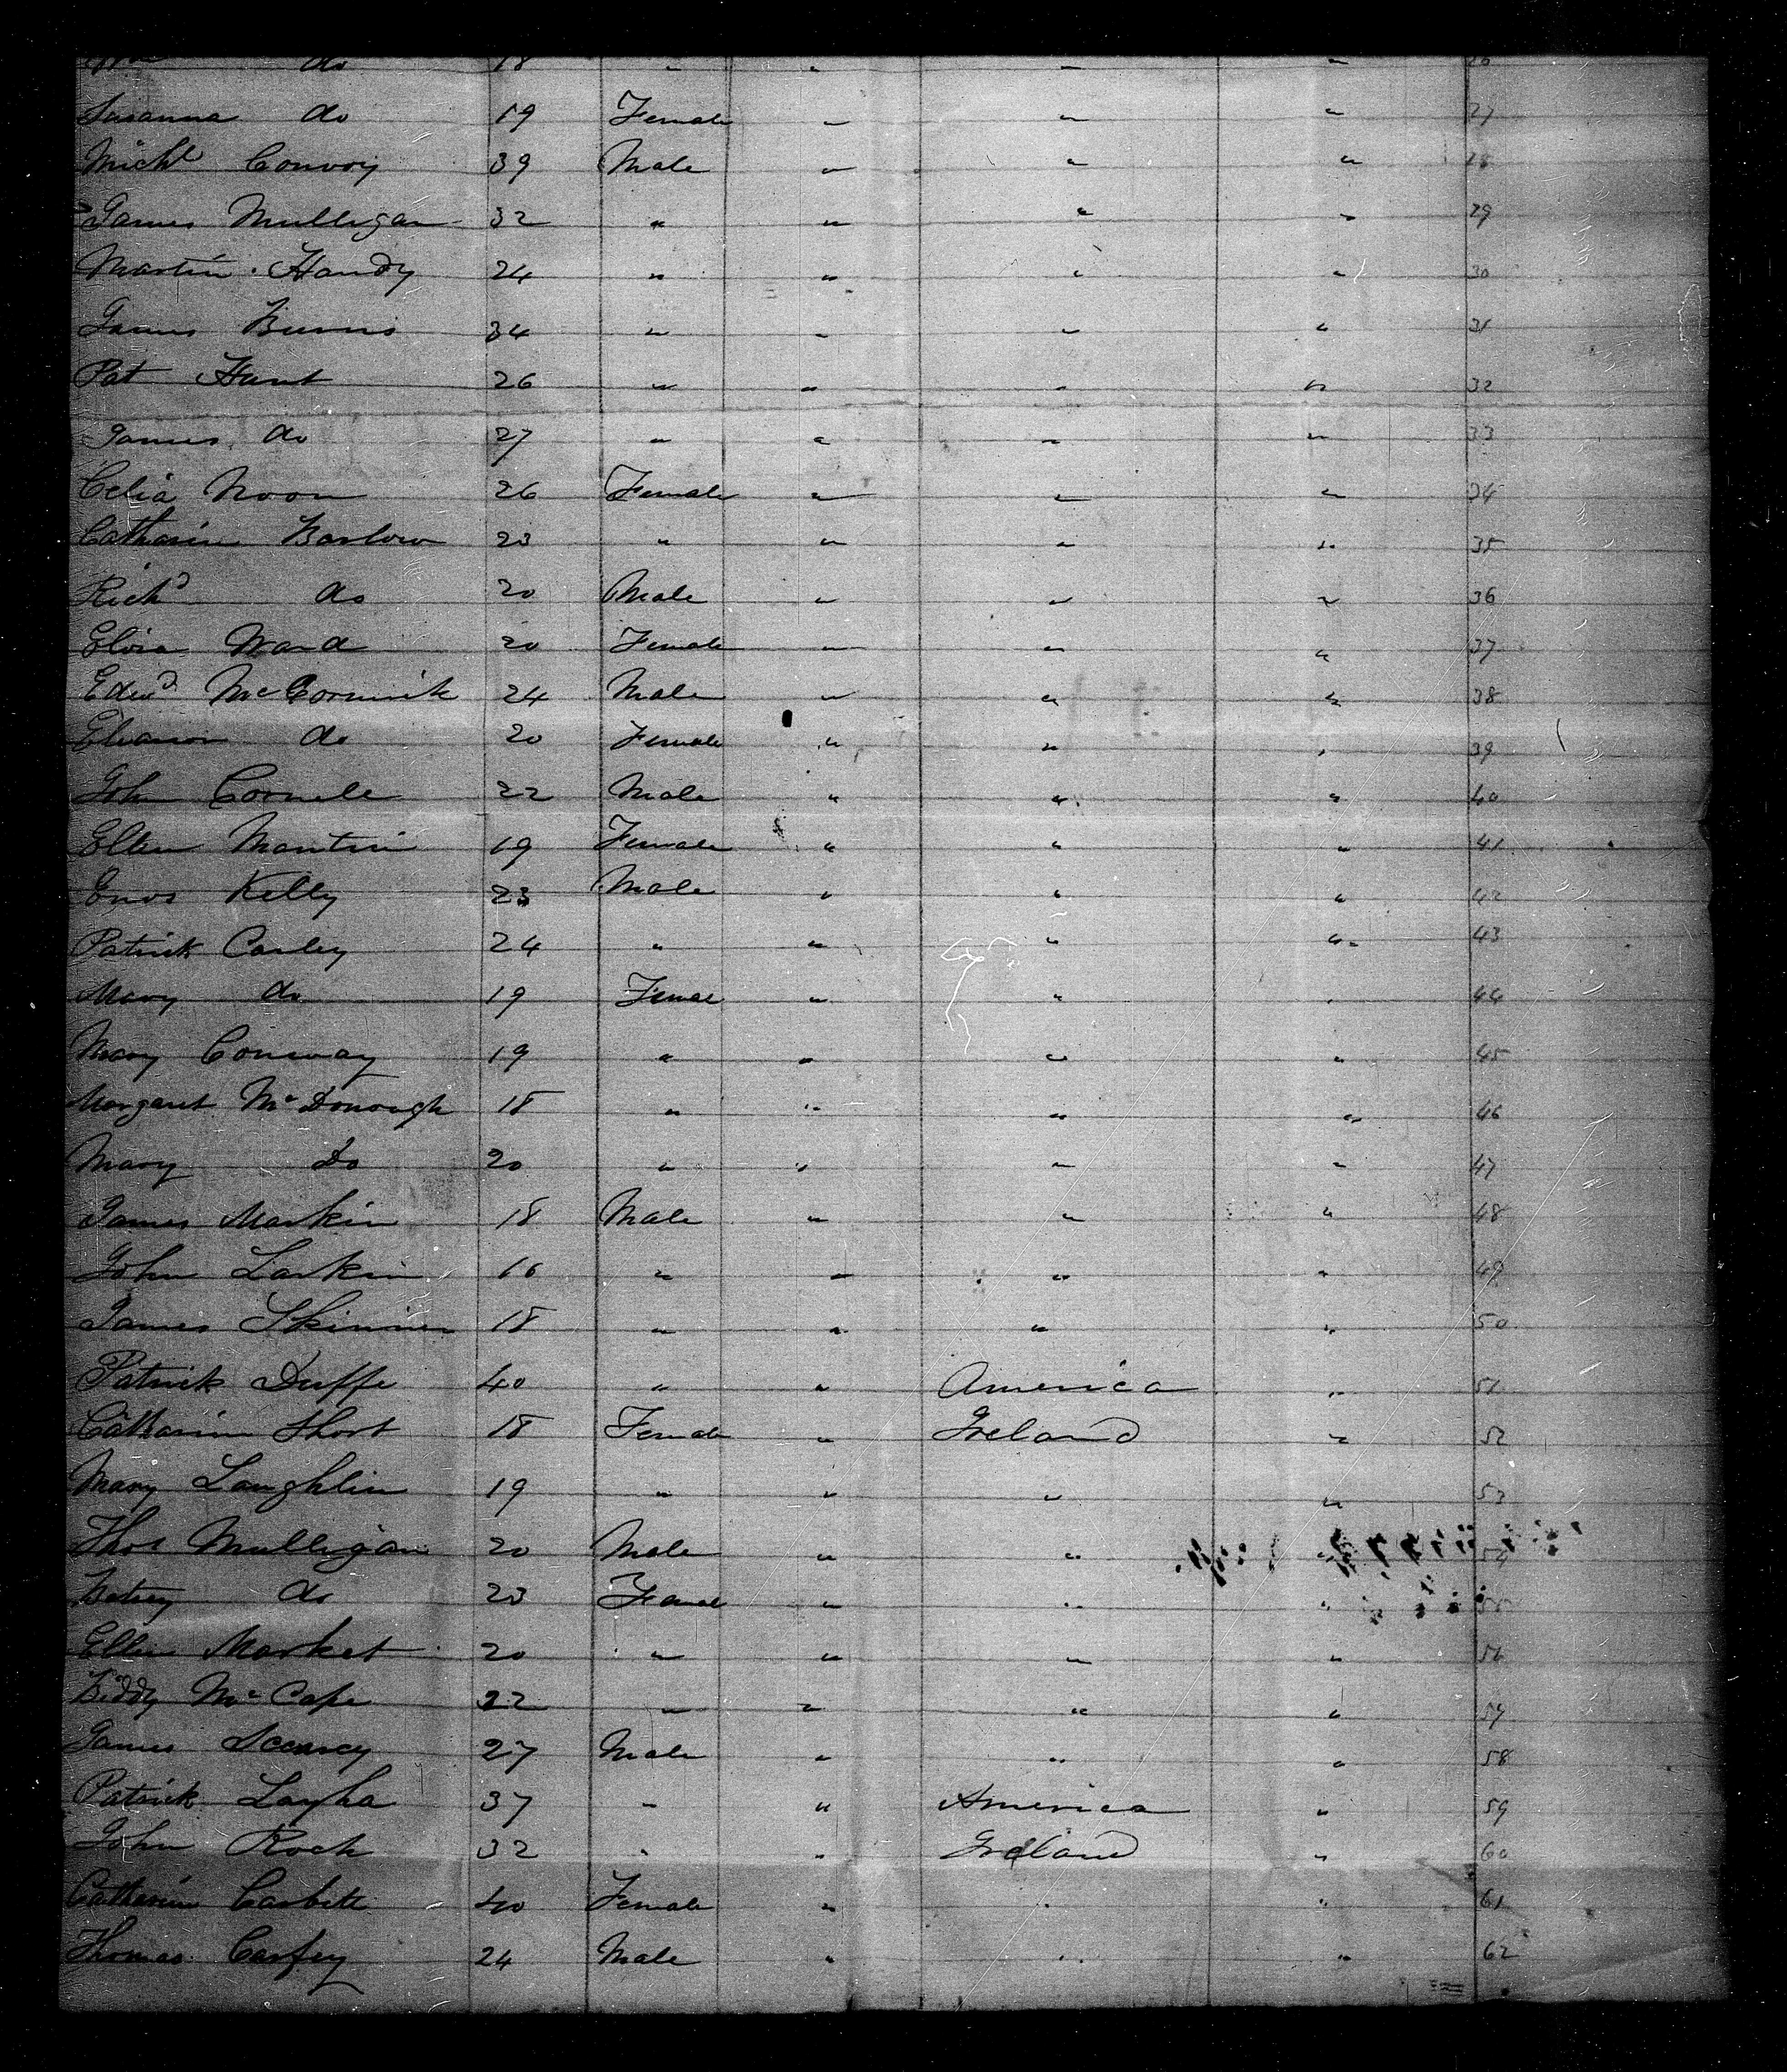 Wm do 18 " " " " 26
Susanna do 19 Female " " " 27
Michl Convoy 39 Male " " " 28
James Mulligan 32 " " " " 29
Martin Handy 24 " " " " 30
James Burns 34 " " " " 31
Pat Hunt 26 " " " " 32
James do 27 " " " " 33
Celia Noon 26 Female " " " 34
Catharin Barlow 23 " " " " 35
Richd do 20 Male " " " 36
Eliza Ward 20 Female " " " 37
Edwd McCormick 24 Male " " " 38
Eleanor do 20 Female " " " 39
John Cornele 22 Male " " " 40
Ellen Mantin 19 Female " " " 41
Enos Kelly 23 Male " " " 42
Patrick Carley 24 " " " " 43
Mary do 19 Femae " " " 44
Mary Conway 19 " " " " 45
Margaret McDonough 18 " " " " 46
Mary Do 20 " " " " 47
James Markin 18 Male " " " 48
John Larkin 16 " " " " 49
James Skinner 18 " " " " 50
Patrick Duffe 40 " " America " 51
Catharin Short 18 Female " Ireland " 52
Mary Laughlin 19 " " " " 53
Thos Mulligan 20 Male " " " 54
Betsey do 23 Female " " " 55
Ellen Market 20 " " " " 56
Biddy McCape 22 " " " " 57
James 27 Male " " " 58
Patrick Laysha 37 " " America " 59
John Roch 32 " " Ireland " 60
Catharin Carbett 40 Female " " " 61
Thomas Carfey 24 Male " " " 62